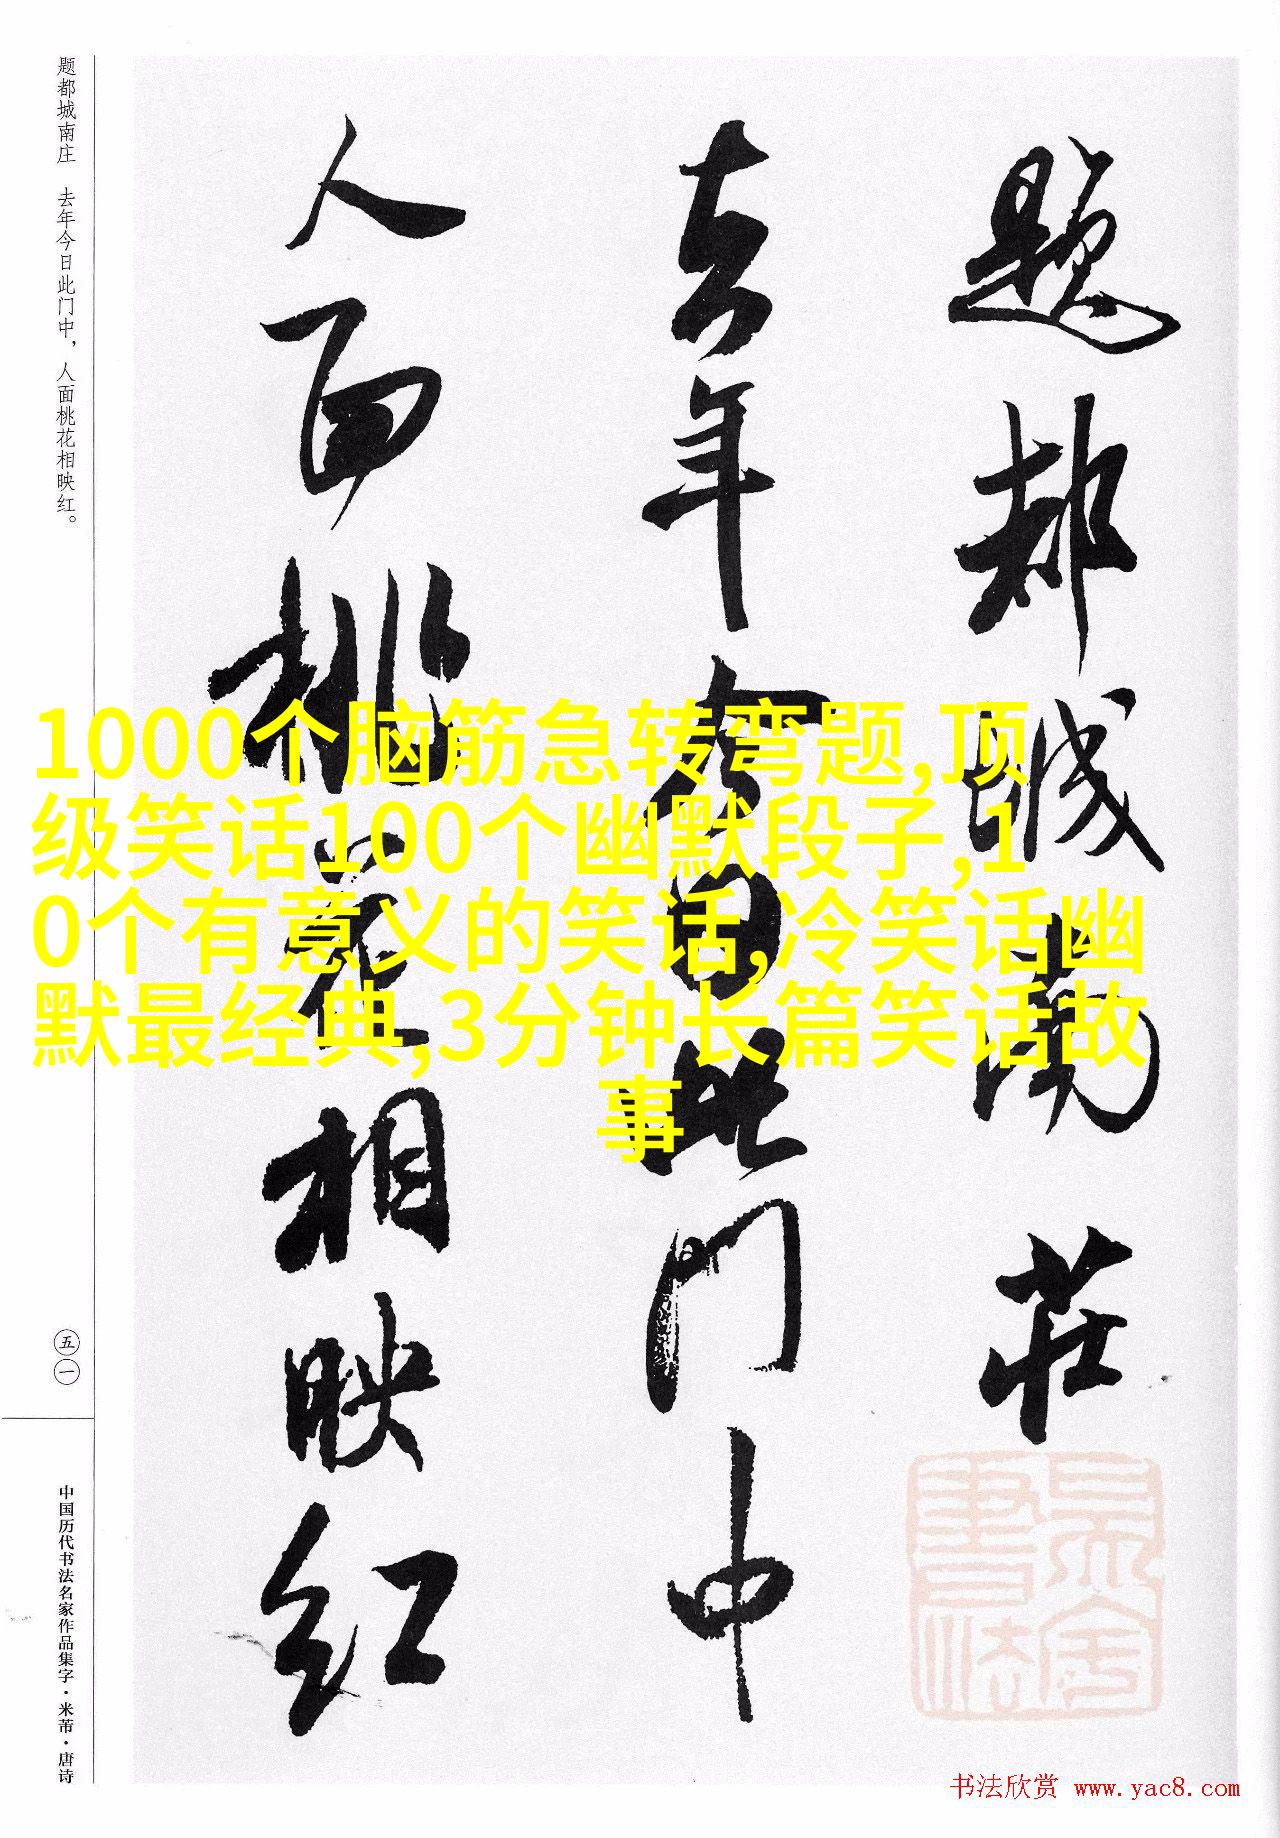 题都城南庄
去年今日此门中
人面桃花相映红
题都城南庄 去年今日此门中，人面桃花相映红。
五一
中国历代书法名家作品集字·米芾·唐诗
1000个脑筋急转弯题,顶
级笑话100个幽默段子,1
0个有意义的笑话,冷笑话幽
默最经典,3分钟长篇笑话故
事
书法欣赏 www.yac8.com